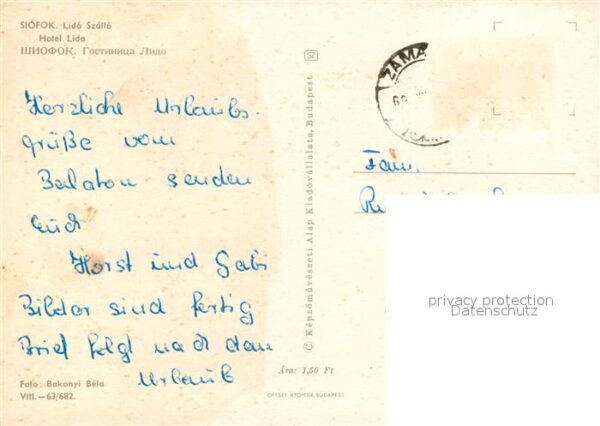 SIÓFOK. Lidó Szálló
Hotel Lido
ШИОФОК. Гостиница Лидо
Herzliche Urlaubs-
grüße vom
Balaton senden
Euch
Horst und Gabi
Bilder sind fertig
Brief folgt nach dem
Urlaub
Foto: Bakonyi Béla
VIII.—63/682.
© Képzőművészeti Alap Kiadóvállalata, Budapest
Ára: 1,50 Ft
OFFSET-NYOMDA, BUDAPEST
ZAMÁ
Fam.
privacy protection
Datenschutz